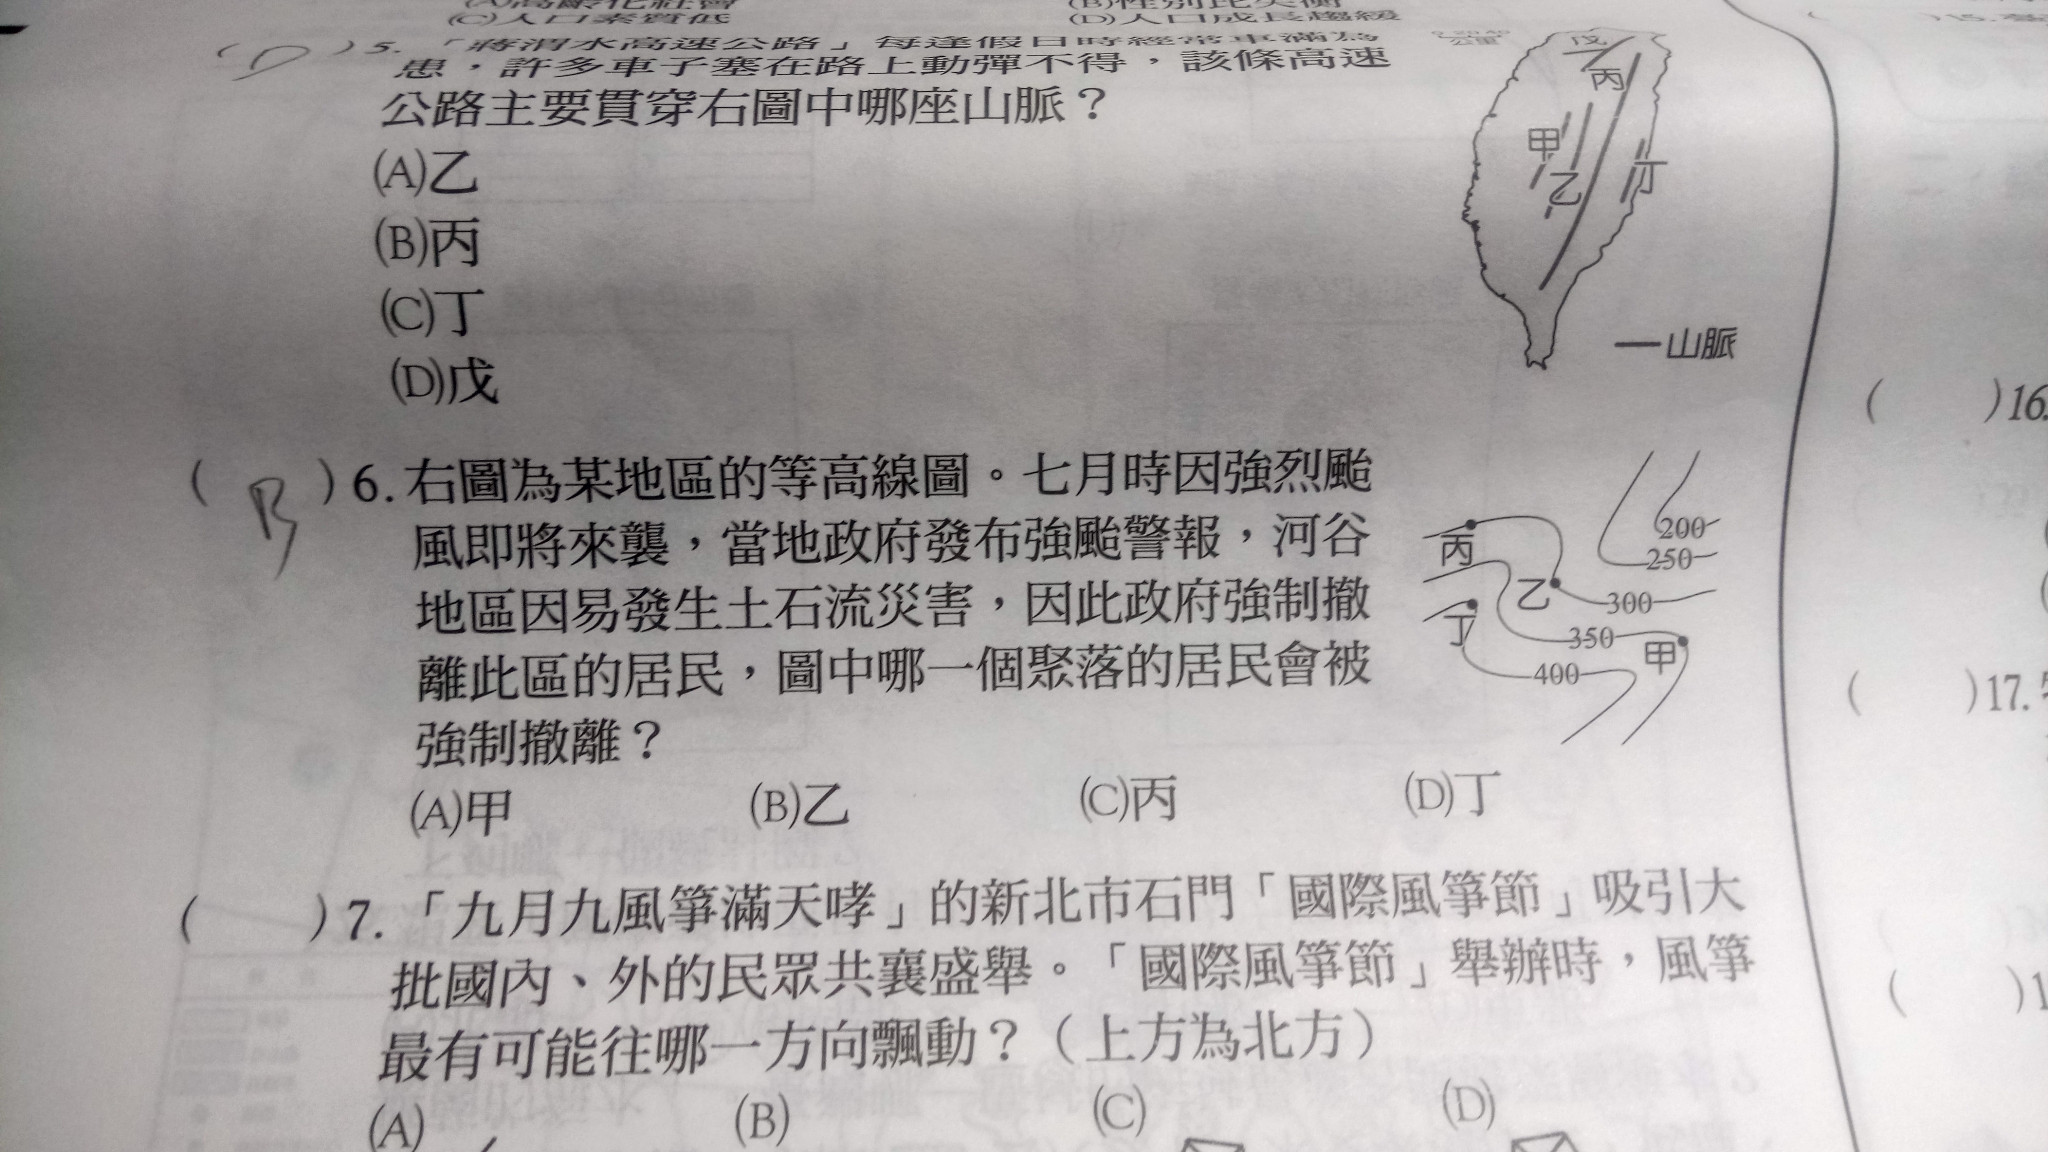 (A)高齡化社會 (B)性別比失衡
(C)人口素質低 (D)人口成長趨緩
( D )5. 「蔣渭水高速公路」每逢假日時經常車滿為
患，許多車子塞在路上動彈不得，該條高速
公路主要貫穿右圖中哪座山脈？
(A)乙
(B)丙
(C)丁
(D)戊
公里
戊
丙
甲
乙
丁
山脈
( B )6. 右圖為某地區的等高線圖。七月時因強烈颱
風即將來襲，當地政府發布強颱警報，河谷
地區因易發生土石流災害，因此政府強制撤
離此區的居民，圖中哪一個聚落的居民會被
強制撤離？
(A)甲 (B)乙 (C)丙 (D)丁
200
250
丙
乙
300
丁
350
甲
400
( )7. 「九月九風箏滿天哮」的新北市石門「國際風箏節」吸引大
批國內、外的民眾共襄盛舉。「國際風箏節」舉辦時，風箏
最有可能往哪一方向飄動？（上方為北方）
(A) (B) (C) (D)
( )15.
( )16.
( )17.
( )1